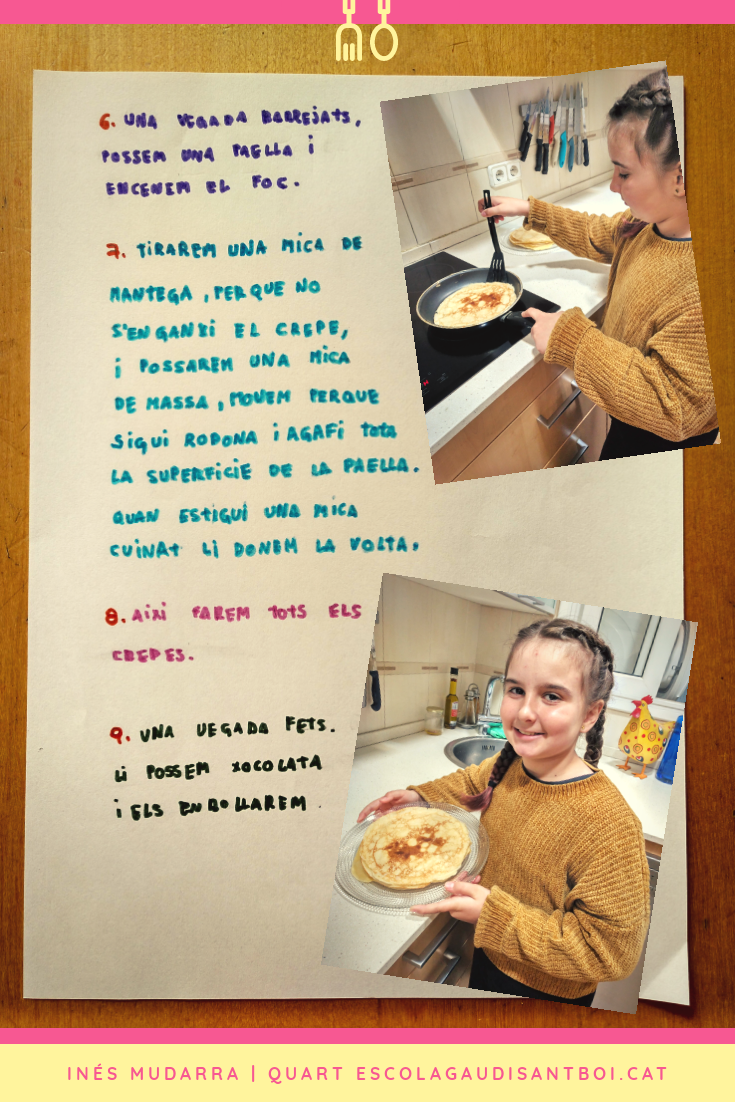 6. UNA VEGADA BARREJATS,
POSSEM UNA PAELLA i
ENCENEM EL FOC.
7. TIRAREM UNA MICA DE
MANTEGA, PER QUE NO
S'ENGANXI EL CREPE,
i POSSAREM UNA MICA
DE MASSA, MOVEM PERQUE
SIGUI RODONA i AGAFI TOTA
LA SUPERFICIE DE LA PAELLA.
QUAN ESTIGUI UNA MICA
CUINAT LI DONEM LA VOLTA.
8. AIXI FAREM TOTS ELS
CREPES.
9. UNA VEGADA FETS.
LI POSSEM XOCOLATA
i ELS ENROLLAREM.
INÉS MUDARRA | QUART ESCOLAGAUDISANTBOI.CAT